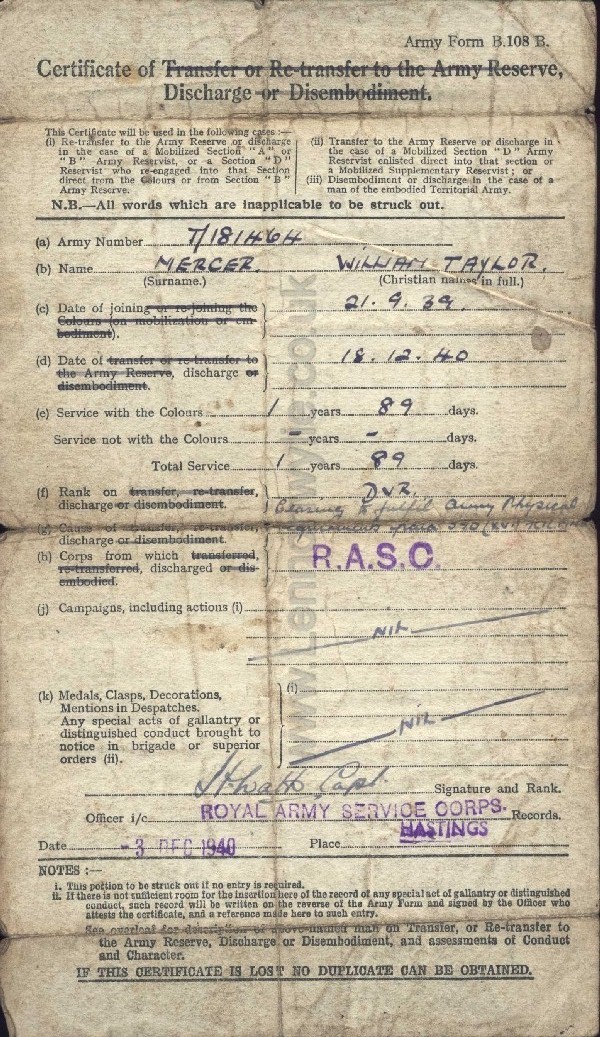 Army Form B.108 B.
Certificate of Transfer or Re-transfer to the Army Reserve,
Discharge or Disembodiment.
This Certificate will be used in the following cases :—
(i) Re-transfer to the Army Reserve or discharge in the case of a Mobilized Section "A" or "B" Army Reservist, or a Section "D" Reservist who re-engaged into that Section direct from the Colours or from Section "B" Army Reserve.
(ii) Transfer to the Army Reserve or discharge in the case of a Mobilized Section "D" Army Reservist enlisted direct into that section or a Mobilized Supplementary Reservist ; or
(iii) Disembodiment or discharge in the case of a man of the embodied Territorial Army.
N.B.—All words which are inapplicable to be struck out.
(a) Army Number T/181464
(b) Name MERCER. WILLIAM TAYLOR.
(Surname.) (Christian names in full.)
(c) Date of joining or re-joining the 21.9.39.
Colours (on mobilization or em-
bodiment).
(d) Date of transfer or re-transfer to 18.12.40
the Army Reserve, discharge or
disembodiment.
(e) Service with the Colours 1 years 89 days.
Service not with the Colours - years - days.
Total Service 1 years 89 days.
(f) Rank on transfer, re-transfer, DVR.
discharge or disembodiment. Ceasing to fulfil Army Physical
(g) Cause of transfer, re-transfer, requirements para 390
discharge or disembodiment.
(h) Corps from which transferred, R.A.S.C.
re-transferred, discharged or dis-
embodied.
(j) Campaigns, including actions (i)
NIL
(k) Medals, Clasps, Decorations, (i)
Mentions in Despatches.
Any special acts of gallantry or NIL
distinguished conduct brought to
notice in brigade or superior
orders (ii).
Capt. Signature and Rank.
Officer i/c ROYAL ARMY SERVICE CORPS. Records.
HASTINGS
Date -3 DEC 1940 Place
NOTES :—
i. This portion to be struck out if no entry is required.
ii. If there is not sufficient room for the insertion here of the record of any special act of gallantry or distinguished
conduct, such record will be written on the reverse of the Army Form and signed by the Officer who
attests the certificate, and a reference made here to such entry.
See overleaf for description of above-named man on Transfer, or Re-transfer to
the Army Reserve, Discharge or Disembodiment, and assessments of Conduct
and Character.
IF THIS CERTIFICATE IS LOST NO DUPLICATE CAN BE OBTAINED.